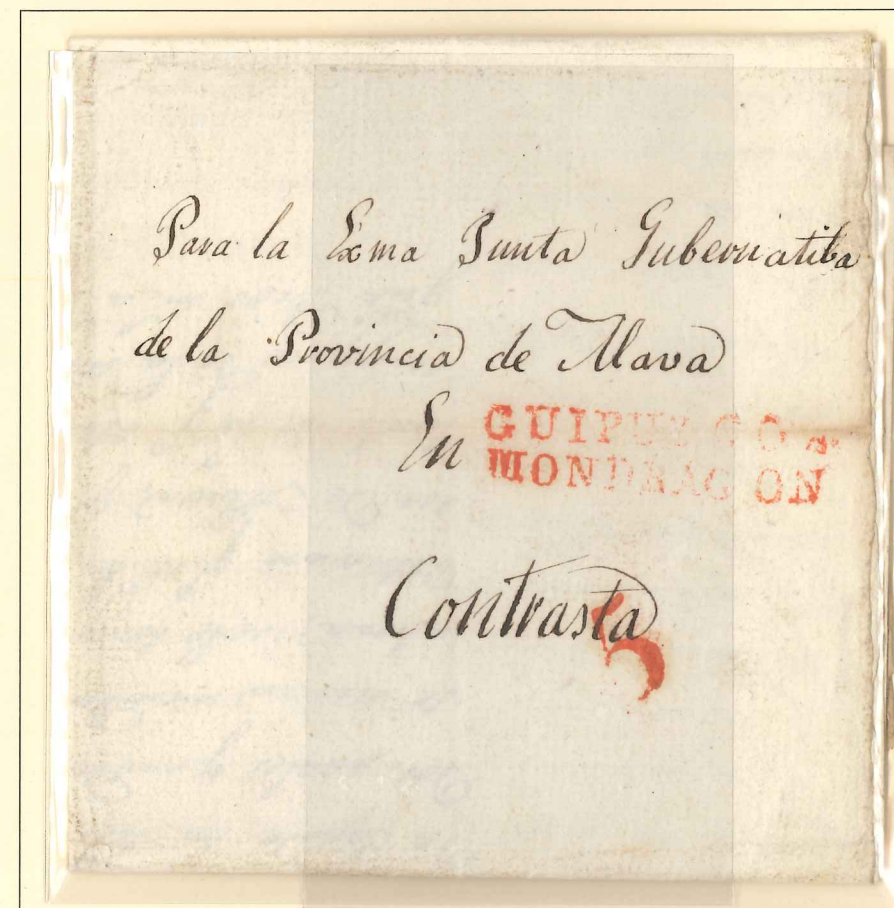 Para la Exma Junta Gubernatiba
de la Provincia de Alava
En
GUIPUZCOA
MONDRAGON
Contrasta
5